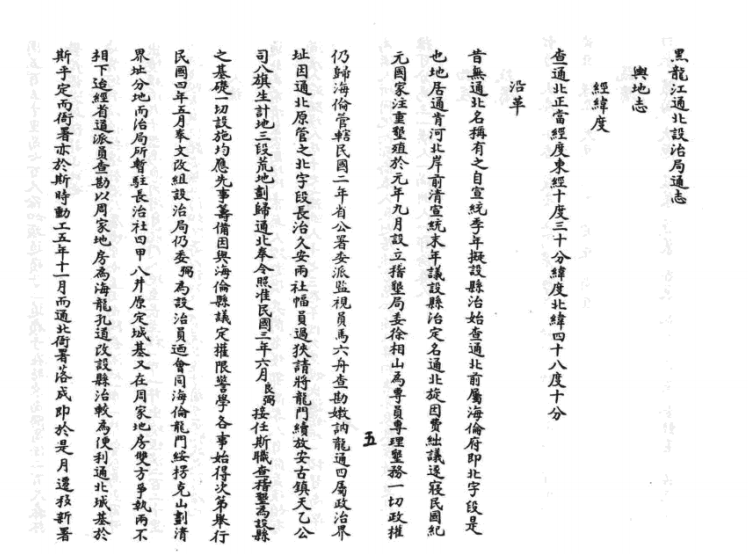 黑龍江通北設治局通志
輿地志
經緯度
查通北正當經度東經十度三十分緯度北緯四十八度十分
沿革
昔無通北名稱有之自宣統季年擬設縣治始查通北前屬海倫府即北字段是
也地居通肯河北岸前清宣統末年議設縣治定名通北旋因費絀議遂寢民國紀
元國家注重墾殖於元年九月設立稽墾局委徐相山為專員專理墾務一切政權
五
仍歸海倫管轄民國二年省公署安派監視員馬六舟查勘嫩訥龍通四屬政治界
址因通北原管之北字段長治久安兩社幅員過狹請將龍門續放安古鎮天乙公
司八旗生計地三段荒地劃歸通北奉令照准民國三年六月良弼接任斯職查稽墾為設縣
之基礎一切設施均應先事籌備因與海倫縣議定權限警學各事始得次第舉行
民國四年五月奉文改組設治局仍委弼為設治員迺會同海倫龍門綏楞克山劃清
界址分地而治局所暫駐長治社四甲八井原定城基又在周家地房雙方爭執兩不
相下迨經省道派員查勘以周家地房為海龍孔道改設縣治較為便利通北城基於
斯乎定而衙署亦於斯時動工五年十一月而通北衙署落成即於是月遷移新署